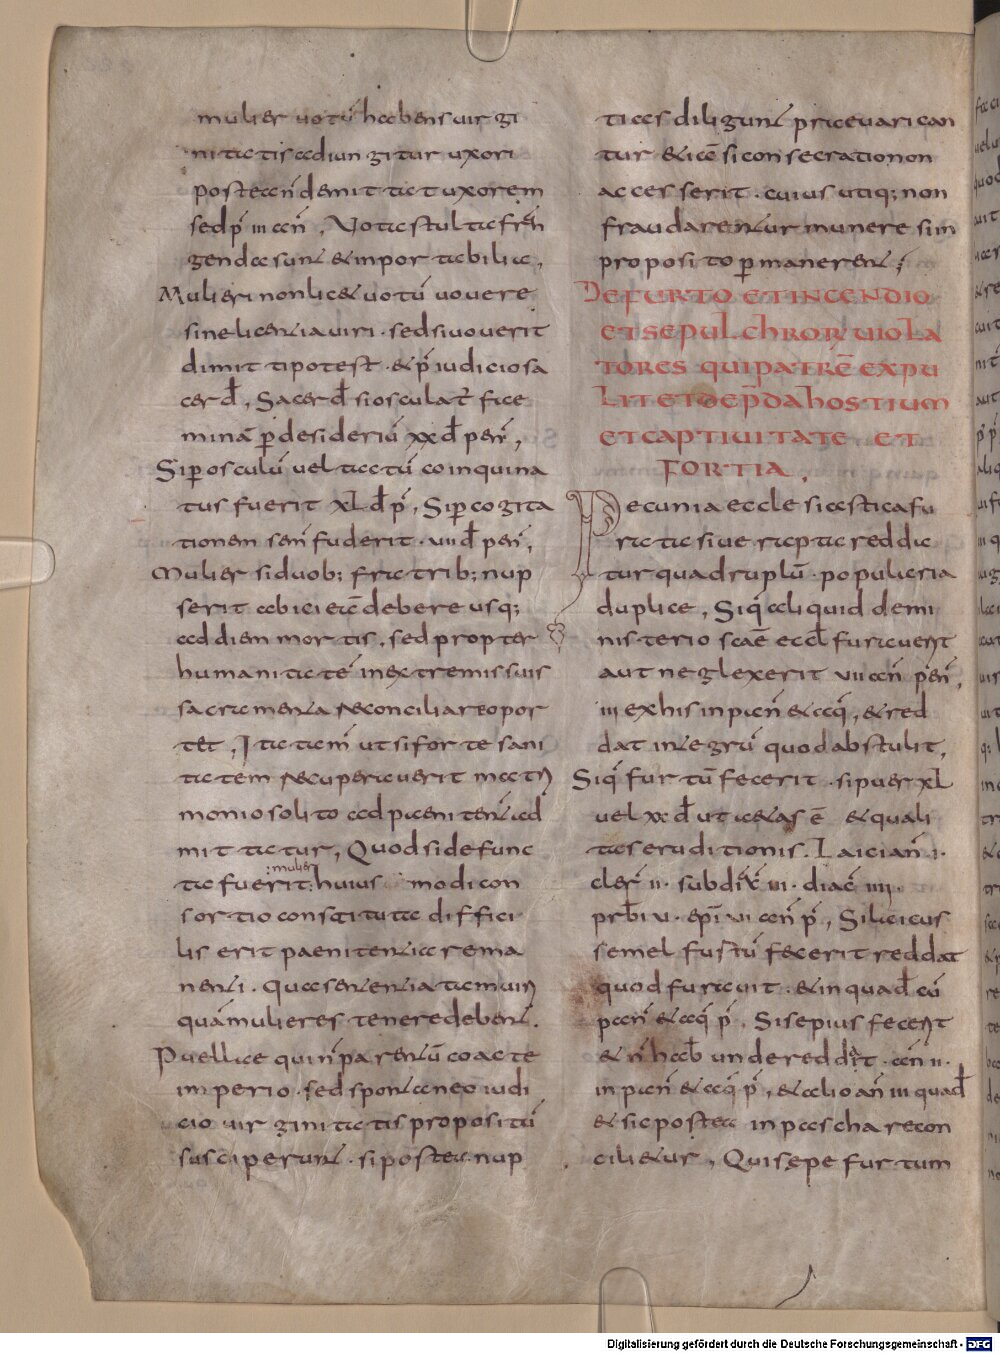 mulier uotū habens uir gi
nitatis adiungitur uxori
postea n̄ demittat uxorem
sed p̄ III ān, Uota stulta frān
genda sunt & inportabilia,
Mulieri non lic& uotū uouere
sine licentia uiri · sed si uouerit
dimitti potest · & p̄ iudicio sa
cerđ, Sacerđ si osculat̄ fue
minā ꝑ desideriū XX đ pen̄,
Si ꝑ osculū uel tactū coinquina
tus fuerit XL đ p̄, Si ꝑ cogita
tionem sen̄ fuderit · VII đ pen̄,
Mulier si duob; fratrib; nup
serit abici eā debere usq;
ad diem mortis, sed propter
humanitatē in extremis suis
sacramenta reconciliare opor
tēt, Ita tam̄ ut si forte sani
tatem recuperauerit matri
monio solito ad paenitentiā ad
mittatur, Quod si defunc
ta fuerit mulier huius modi con
sortio constituta diffici
lis erit paenitentia rema
nenti · quae sententia tam uiri
quā mulieres tenere debent.
Puellae quī n̄ parentū coacte
imperio · sed spontaneo iudi
cio uirginitatis propositū
susciperunt · si postea nup
tias diligunt praeuarican
tur &iā si consecratio non
accesserit · cuius utiq; non
fraudarentur munere si in
proposito ꝑmanerent;
De furto et incendio
et sepulchror uiola
tores qui patrē expu
lit et dep̄da hostium
et captiuitate et
fortia.
Pecunia ecclesiastica fu
rata siue rapta redda
tur quadruplū · popularia
duplice, Siq̄ aliquid de mi
nisterio scāe eccl̄ furauerit
aut neglexerit VII ān pen̄,
III ex his in pan̄ & aq̄, & red
dat integrū quod abstulit,
Siq̄ furtū fecerit · si puer XL
uel XX đ ut aetas ē & quali
tas eruditionis. Laici ān I ·
cler̄ II · subdiac̄ III · diac̄ IIII ·
prb̄i V · ep̄i VI ān p̄, Si laicus
semel furtū fecerit reddat
quod furauit · & in quađ cū
pan̄ & aq̄ p̄, Si sepius fecerit
& n̄ hab̄ unde reddat · ān II ·
in pan̄ & aq̄ p̄, & alio ān III quađ
& sic postea in pascha recon
cili&ur, Qui sepe furtum
Digitalisierung gefördert durch die Deutsche Forschungsgemeinschaft - DFG